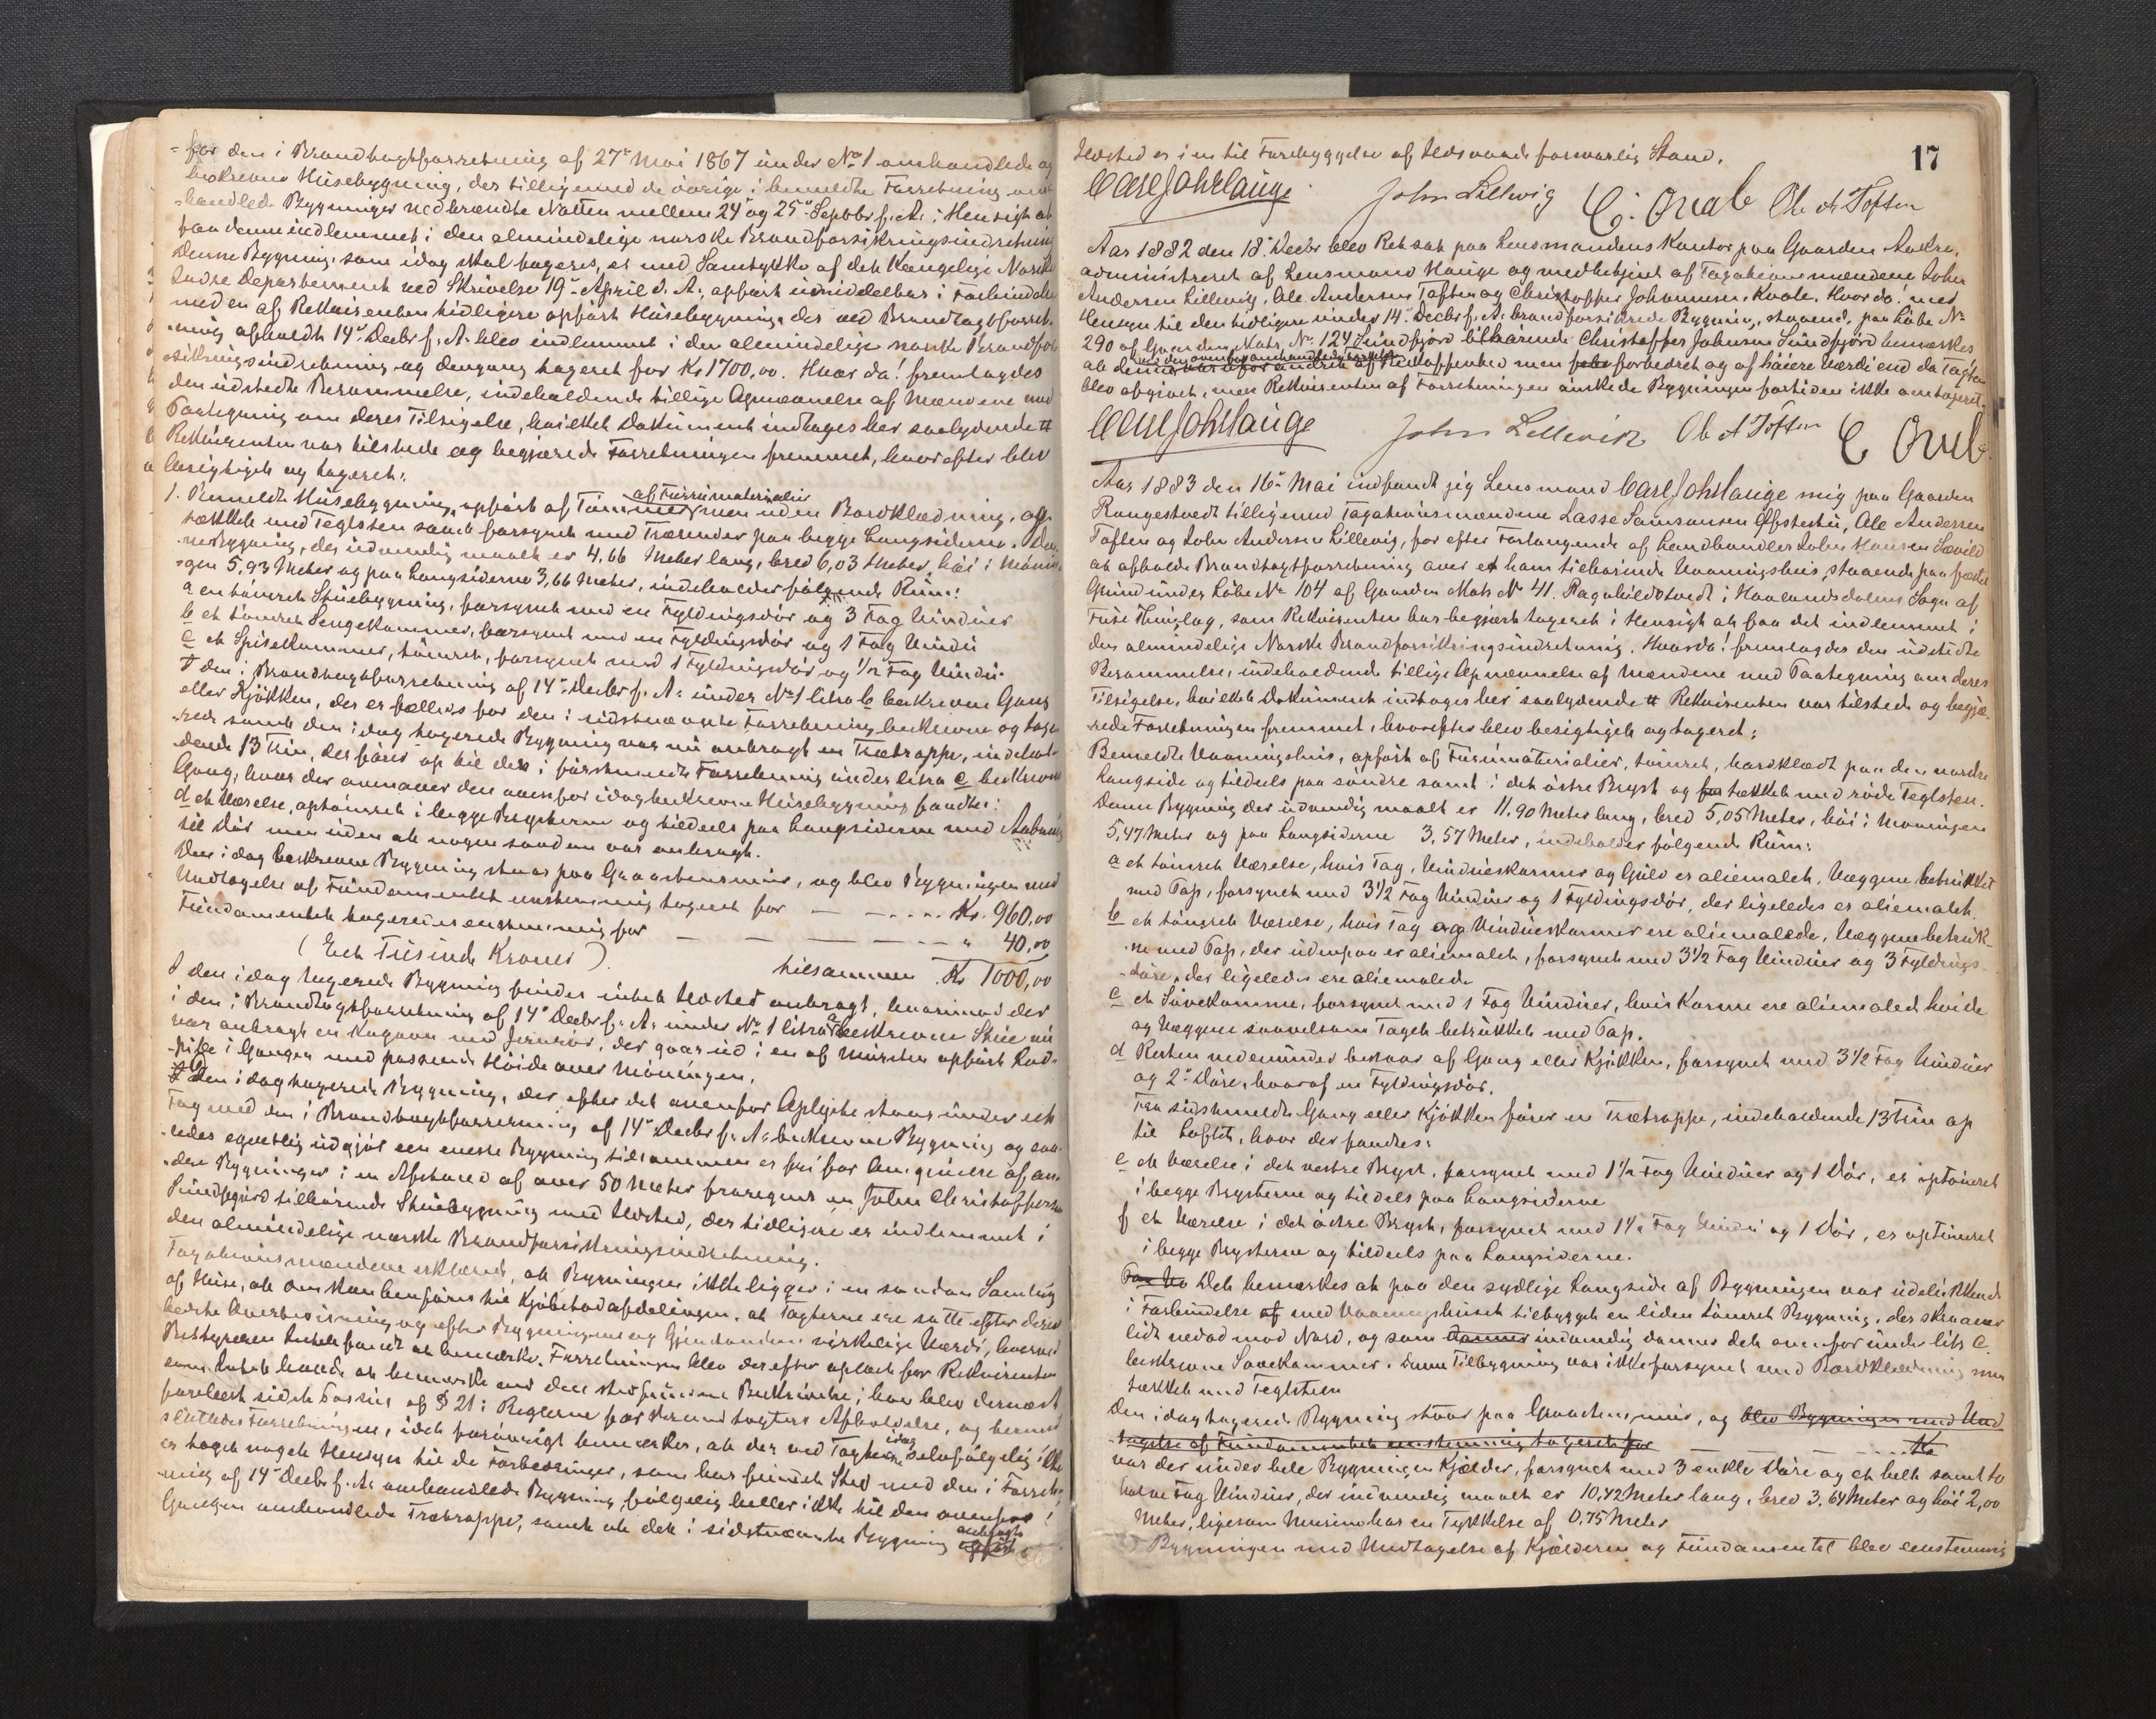 for den i Brandtagtforretning af 27de Mai 1867 under No 1 omhandlede og
beskrevne Huusebygning, der tilligemed de øvrige i bemeldte Forretning om-
handlede Bygninger nedbrændte Natten mellem 24de og 25de Septbr f. A. i Hensigt at
faa denne indlemmet i den almindelige norske Brandforsikringsindretning
Denne Bygning, som idag skal taxeres, er med Samtykke af det Kongelige Norske
Indre Departement ved Skrivelse 19de April d. A., opført umiddelbar i Forbindelse
med en af Rekvirenten tidligere opført Huusebygning, der ved Brandtagtforret-
ning afholdt 14de Decbr f. A. blev indlemmet i den almindelige norske Brandfor-
sikringsindretning og dengang taxeret for Kr 1700,00. Hvor da! fremlagdes
den udstedte Berammelse, indeholdende tillige Opnævnelse af Mændene med
Paategning om deres Tilsigelse, hvilket Dokument indtages her saalydende #
Rekvirenten var tilstede og begjærede Forretningen fremmet, hvorefter blev
besigtiget og taxeret:
1. Bemeldte Huusebygning, opført af Tømmer af Furumaterialier men uden Bordklædning, og
tækket med Teglsten samt forsynet med Tærender paa begge Langsiderne. Den-
ne Bygning, der udvendig maalt er 4,66 Meter lang, bred 6,03 Meter, høi i Mønnin-
gen 5,93 Meter og paa Langsiderne 3,66 Meter, indeholder følgende Rum:
a en tømret Stuebygning, forsynet med en Fyldingsdør og 3 Fag Vinduer
b et tømret Sengekammer, forsynet med en Fyldingsdør og 1 Fag Vindu
c et Spisekammer, tømret, forsynet med 1 Fyldningsdør og 1/2 Fag Vindu.
I den i Brandtagtforretning af 14de Decbr f. A. under No 1 litra b beskrevne Gang
eller Kjøkken, der er fælles for den i sidstnævnte Forretning beskrevne og taxe-
rede samt den idag taxerede Bygning var nu anbragt en Trætrappe, indehol-
dende 13 Trin, der fører op til den i førstnævnte Forretning under litra c beskrevne
Gang, hvor der ovenover den ovenfor idag beskrevne Huusebygning fandtes:
d et Værelse, optømret i begge Brysterne og tildeels paa Langsiderne med Aabning
til Dør men uden at nogen saadan var anbragt.
Den idag beskrevne Bygning staar paa Graastensmuur, og blev Bygningen med
Undtagelse af Fundamentet eenstemmig taxeret for — — . . . . Kr. 960,00
Fundamentet taxeredes eenstemmig for — — — — — " 40,00
(Eet Tusinde Kroner) tilsammen Kr 1000,00
I den idag taxerede Bygning findes intet Ildsted anbragt, hvorimod der
i den i Brandtagtforretning af 14de Decbr f. A. under No 1 litra a beskrevne Stue nu
var anbragt en Kogeovn med Jernrør, der gaar ud i en af Muursten opført Rød-
pibe i Gangen med passende Høide over Mønningen.
Den idag taxerede Bygning, der efter det ovenfor Oplyste staar under et
Tag med den i Brandtagtforretning af 14de Decbr f. A. beskrevne Bygning og saa-
ledes egentlig udgjør een eneste Bygning tilsammen er fri for Omgivelse af an-
dre Bygninger i en Afstand af over 50 Meter fraregnet en John Christoffersen
Sundfjord tilhørende Stuebygning med Ildsted, der tidligere er indlemmet i
den almindelige norske Brandforsikringsindretning.
Tagtationsmændene erklærede, at Bygningen ikke ligger i en saadan Samling
af Huse, at den kan henføres til Kjøbstadafdelingen, at Tagterne ere satte efter deres
bedste Overbeviisning og efter Bygningerne og Gjenstandens virkelige Værdi, hvorved
Bestyreren Intet fandt at bemærke. Forretningen blev derefter oplæst for Rekvirenten
som Intet havde at bemærke med den stedfundne Beskrivelse; han blev dernæst
forelæst sidste Passus af § 21 i Reglerne for Brandtagters Afholdelse, og hermed
sluttedes Forretningen, idet forøvrigt bemærkes, at der ved Tagten idag selvfølgelig ikke
er taget noget Hensyn til de Forbedringer, som har fundet Sted med den i Forret-
ning af 14de Decbr f. A. omhandlede Bygning, følgelig heller ikke til den ovenfor i
Gangen omhandlede Trætrappe, samt at det i sidstnævnte Bygning anbragte
17
Ildsted er i en til Forebyggelse af Ildsvaade forsvarlig Stand.
Carl Joh Hauge John Lillevig C. Qval Ole A Toften
Aar 1882 den 18de Decbr blev Ret sat paa Lensmandens Kontor paa Gaarden
administreret af Lensmand Hauge og medbetjent af Tagationsmændene John
Andersen Lillevig, Ole Andersen Toften og Christoffer Johannesen Kvale. Hvor da! med
Hensyn til den tidligere under 14de Decbr f. A. brandforsikrede Bygning, staaende paa Løbe No
290 af Gaarden Matr. No. 124 Sundfjord tilhørende Christoffer Johnsen Sundfjord bemærkes
at denne var ufor andret af Beskaffenhed men forbedret og af høiere Værdi end da Tagten
blev afgivet, men Rekvirenten af Forretningen ønskede Bygningen fortiden ikke omtaxeret.
Carl Joh Hauge John Lillevik Ole A Toften C Qval
Aar 1883 den 16de Mai indfandt jeg Lensmand Carl Joh Hauge mig paa Gaarden
Rangestvedt tilligemed Tagationsmændene Lasse Samsonsen Øfstestu, Ole Andersen
Toften og John Andersen Lillevig, for efter Forlangende af Landhandler John Hansen Sævild
at afholde Brandtagtforretning over et ham tilhørende Vaaningshuus, staaende paa fæstet
Grund under Løbe No 104 af Gaarden Matr No 41. Ragnhildstvedt i Haalandsdalens Sogn af
Fuse Thinglag, som Rekvirenten har begjært taxeret i Hensigt at faa det indlemmet i
den almindelige Norske Brandforsikringsindretning. Hvor da! fremlagdes den udstedte
Berammelse, indeholdende tillige Opnævnelse af Mændene med Paategning om deres
Tilsigelse, hvilket Dokument indtages her saalydende # Rekvirenten var tilstede og begjæ-
rede Forretningen fremmet, hvorefter blev besigtiget og taxeret:
Bemeldte Vaaningshuus, opført af Furumaterialier, tømret, bordklædt paa den nordre
Langside og tildeels paa søndre samt i det østre Bryst og tækket med røde Teglsten.
Denne Bygning der udvendig maalt er 11,90 Meter lang, bred 5,05 Meter, høi i Mønningen
5,47 Meter og paa Langsiderne 3,57 Meter, indeholder følgende Rum:
a et tømret Værelse, hvis Tag, Vindueskarmer og Gulv er oliemalet, Væggene betrukket
med Pap, forsynet med 3 1/2 Fag Vinduer og 1 Fyldingsdør, der ligeledes er oliemalet.
b et tømret Værelse, hvis Tag og Vindueskarmer ere oliemalede, Væggene betruk-
ne med Pap, der udenpaa er oliemalet, forsynet med 3 1/2 Fag Vinduer og 3 Fyldings-
døre, der ligeledes ere oliemalede
c et Sovekammer, forsynet med 1 Fag Vinduer, hvis Karme ere oliemalet hvide
og Væggene saavelsom Taget betrukket med Pap.
d Resten nedenunder bestaar af Gang eller Kjøkken, forsynet med 3 1/2 Fag Vinduer
og 2de Døre, hvoraf en Fyldingsdør.
Fra sidstmeldte Gang eller Kjøkken fører en Trætrappe, indeholdende 13 Trin op
til Loftet, hvor der fandtes:
e et Værelse i det vestre Bryst, forsynet med 1 1/2 Fag Vinduer og 1 Dør, er optømret
i begge Brysterne og tildels paa Langsiderne
f et Værelse i det østre Bryst, forsynet med 1 1/2 Fag Vindu og 1 Dør, er optømret
i begge Brysterne og tildeels paa Langsiderne.
Det bemærkes at paa den sydlige Langside af Bygningen var udelukkende
i Forbindelse af med Vaaningshuset tilbygget en liden tømret Bygning, der skraaner
lidt nedad mod Nord, og som danner indvendig danner det ovenfor under litr c.
beskrevne Sovekammer. Denne Tilbygning var ikke forsynet med Bordklædning men
tækket med Teglsten
Den idag taxerede Bygning staar paa Graastensmuur, og blev Bygningen med Und
tagelse af Fundamentet eenstemmig taxeret for . . . . . Kr
var der under hele Bygningen Kjælder, forsynet med 3 enkle Døre og et helt samt to
halve Fag Vinduer, der indvendig maalt er 10,42 Meter lang, bred 3,64 Meter og høi 2,00
Meter, ligesom Murene har en Tykkelse af 0,75 Meter
Bygningen med Undtagelse af Kjælderen og Fundamentet blev eenstemmig